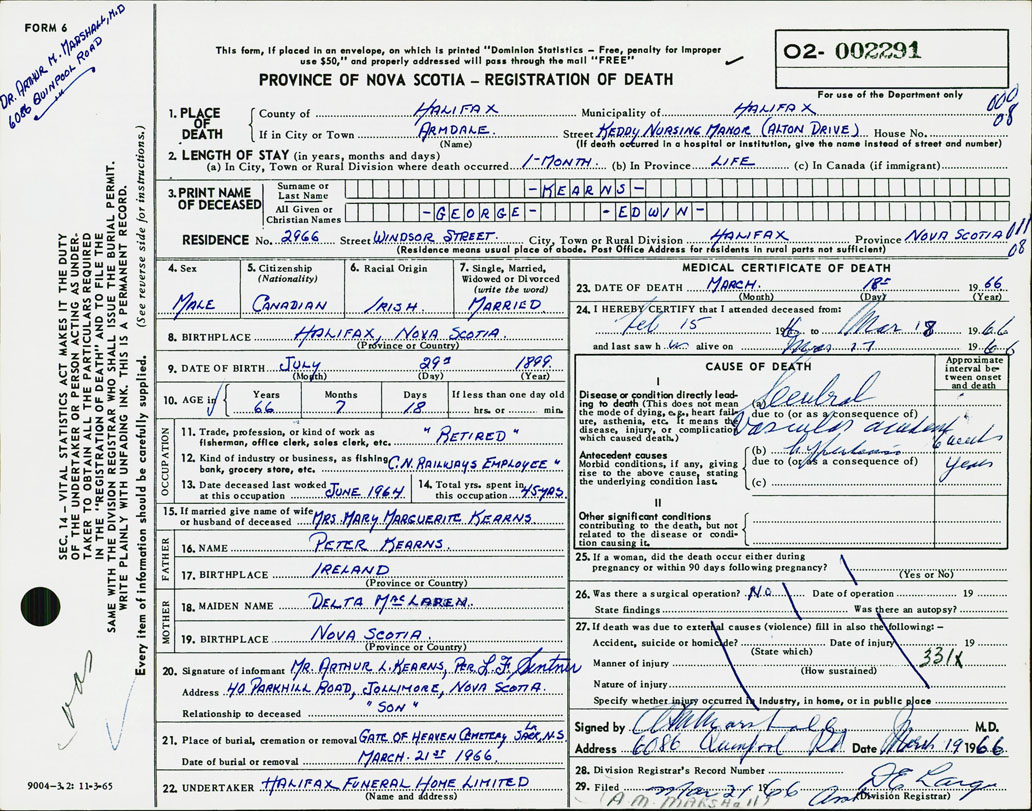 FORM 6
DR. ARTHUR M. MARSHALL, M.D
6086 QUINPOOL ROAD
This form, if placed in an envelope, on which is printed "Dominion Statistics – Free, penalty for improper
use $50," and properly addressed will pass through the mail "FREE"
PROVINCE OF NOVA SCOTIA – REGISTRATION OF DEATH
02- 002291
For use of the Department only
000
08
1. PLACE OF DEATH
County of HALIFAX Municipality of HALIFAX
If in City or Town ARMDALE. Street KEDDY NURSING MANOR (ALTON DRIVE) House No.
(Name) (If death occurred in a hospital or institution, give the name instead of street and number)
2. LENGTH OF STAY (in years, months and days)
(a) In City, Town or Rural Division where death occurred 1-MONTH. (b) In Province LIFE (c) In Canada (if immigrant)
3. PRINT NAME OF DECEASED
Surname or Last Name -KEARNS-
All Given or Christian Names -GEORGE- -EDWIN-
RESIDENCE No. 2966 Street WINDSOR STREET. City, Town or Rural Division HALIFAX Province NOVA SCOTIA
011
08
(Residence means usual place of abode. Post Office Address for residents in rural parts not sufficient)
4. Sex
MALE
5. Citizenship (Nationality)
CANADIAN
6. Racial Origin
IRISH.
7. Single, Married, Widowed or Divorced (write the word)
MARRIED
8. BIRTHPLACE HALIFAX, NOVA SCOTIA.
(Province or Country)
9. DATE OF BIRTH JULY 29th 1899.
(Month) (Day) (Year)
10. AGE in
Years Months Days If less than one day old
66 7 18 hrs. or min.
OCCUPATION
11. Trade, profession, or kind of work as
fisherman, office clerk, sales clerk, etc. "RETIRED"
12. Kind of industry or business, as fishing
bank, grocery store, etc. C.N. RAILWAYS EMPLOYEE "
13. Date deceased last worked
at this occupation JUNE 1964
14. Total yrs. spent in
this occupation 45 YRS.
15. If married give name of wife
or husband of deceased MRS. MARY MARGUERITE KEARNS
FATHER
16. NAME PETER KEARNS.
17. BIRTHPLACE IRELAND
(Province or Country)
MOTHER
18. MAIDEN NAME DELTA MACLAREN.
19. BIRTHPLACE NOVA SCOTIA.
(Province or Country)
20. Signature of informant MR. ARTHUR L. KEARNS, PER L.F.
Address 40 PARKHILL ROAD, JOLLIMORE, NOVA SCOTIA.
Relationship to deceased "SON"
21. Place of burial, cremation or removal GATE OF HEAVEN CEMETERY, SACK., N.S.
Date of burial or removal MARCH. 21st 1966
22. UNDERTAKER HALIFAX FUNERAL HOME LIMITED
(Name and address)
MEDICAL CERTIFICATE OF DEATH
23. DATE OF DEATH MARCH. 18th 1966
(Month) (Day) (Year)
24. I HEREBY CERTIFY that I attended deceased from:
Feb 15 19 to Mar 18 1966
and last saw h alive on Mar 17 1966
CAUSE OF DEATH
Approximate interval between onset and death
I
Disease or condition directly leading to death (This does not mean
the mode of dying, e.g., heart failure, asthenia, etc. It means the
disease, injury, or complication
which caused death.)
(a) Cerebral
due to (or as a consequence of)
Vascular accident 6 weeks
Antecedent causes
Morbid conditions, if any, giving
rise to the above cause, stating
the underlying condition last.
(b) Hypertension years
due to (or as a consequence of)
(c)
II
Other significant conditions
contributing to the death, but not
related to the disease or condition causing it.
25. If a woman, did the death occur either during
pregnancy or within 90 days following pregnancy?
(Yes or No)
26. Was there a surgical operation? No Date of operation 19
State findings Was there an autopsy?
27. If death was due to external causes (violence) fill in also the following:-
Accident, suicide or homicide? Date of injury 19
(State which)
331X
Manner of injury
(How sustained)
Nature of injury
Specify whether injury occurred in industry, in home, or in public place
Signed by A M Marshall M.D.
Address 6086 Quinpool Rd Date March 19 1966
28. Division Registrar's Record Number
29. Filed Mar 21 1966
(Division Registrar)
(A.M. MARSHALL)
SEC. 14 – VITAL STATISTICS ACT MAKES IT THE DUTY
OF THE UNDERTAKER OR PERSON ACTING AS UNDERTAKER TO OBTAIN ALL THE PARTICULARS REQUIRED
IN THE "REGISTRATION OF DEATH" AND TO FILE THE
SAME WITH THE DIVISION REGISTRAR WHO SHALL ISSUE THE BURIAL PERMIT.
WRITE PLAINLY WITH UNFADING INK. THIS IS A PERMANENT RECORD.
Every item of information should be carefully supplied. (See reverse side for instructions.)
9004-3.2: 11-3-65